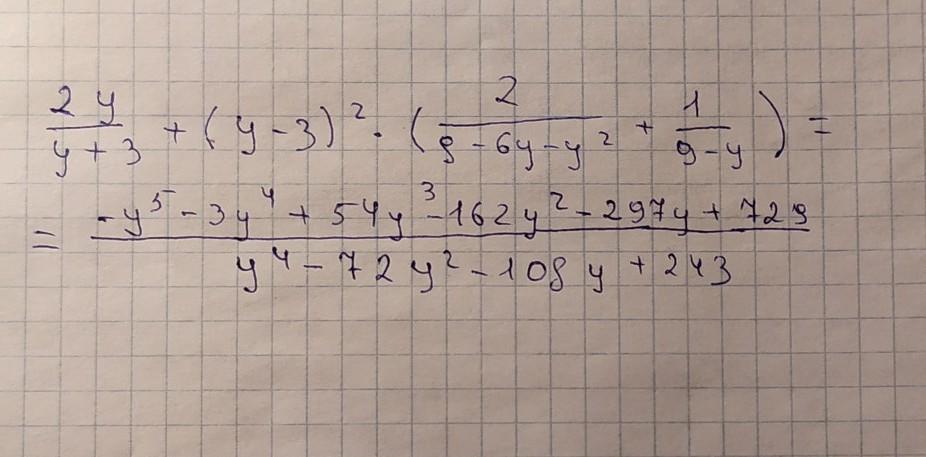 2y/(y + 3) + (y - 3)² · (2/(9 - 6y - y²) + 1/(9 - y)) =
= (-y⁵ - 3y⁴ + 54y³ - 162y² - 297y + 729)/(y⁴ - 72y² - 108y + 243)